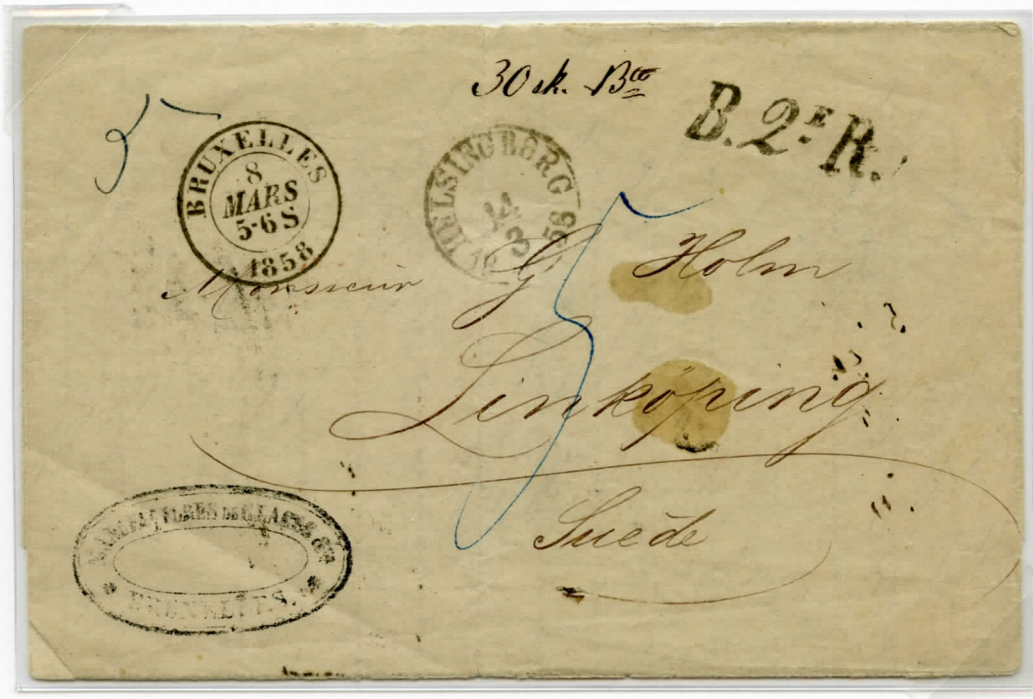 30 sk. Bco
B. 2E R.
BRUXELLES
8
MARS
5-6 S
1858
HELSINGBORG
14
3
1858
Monsieur G Holm
Linköping
Suède
MANUFACTURES DE GLACES &
BRUXELLES.